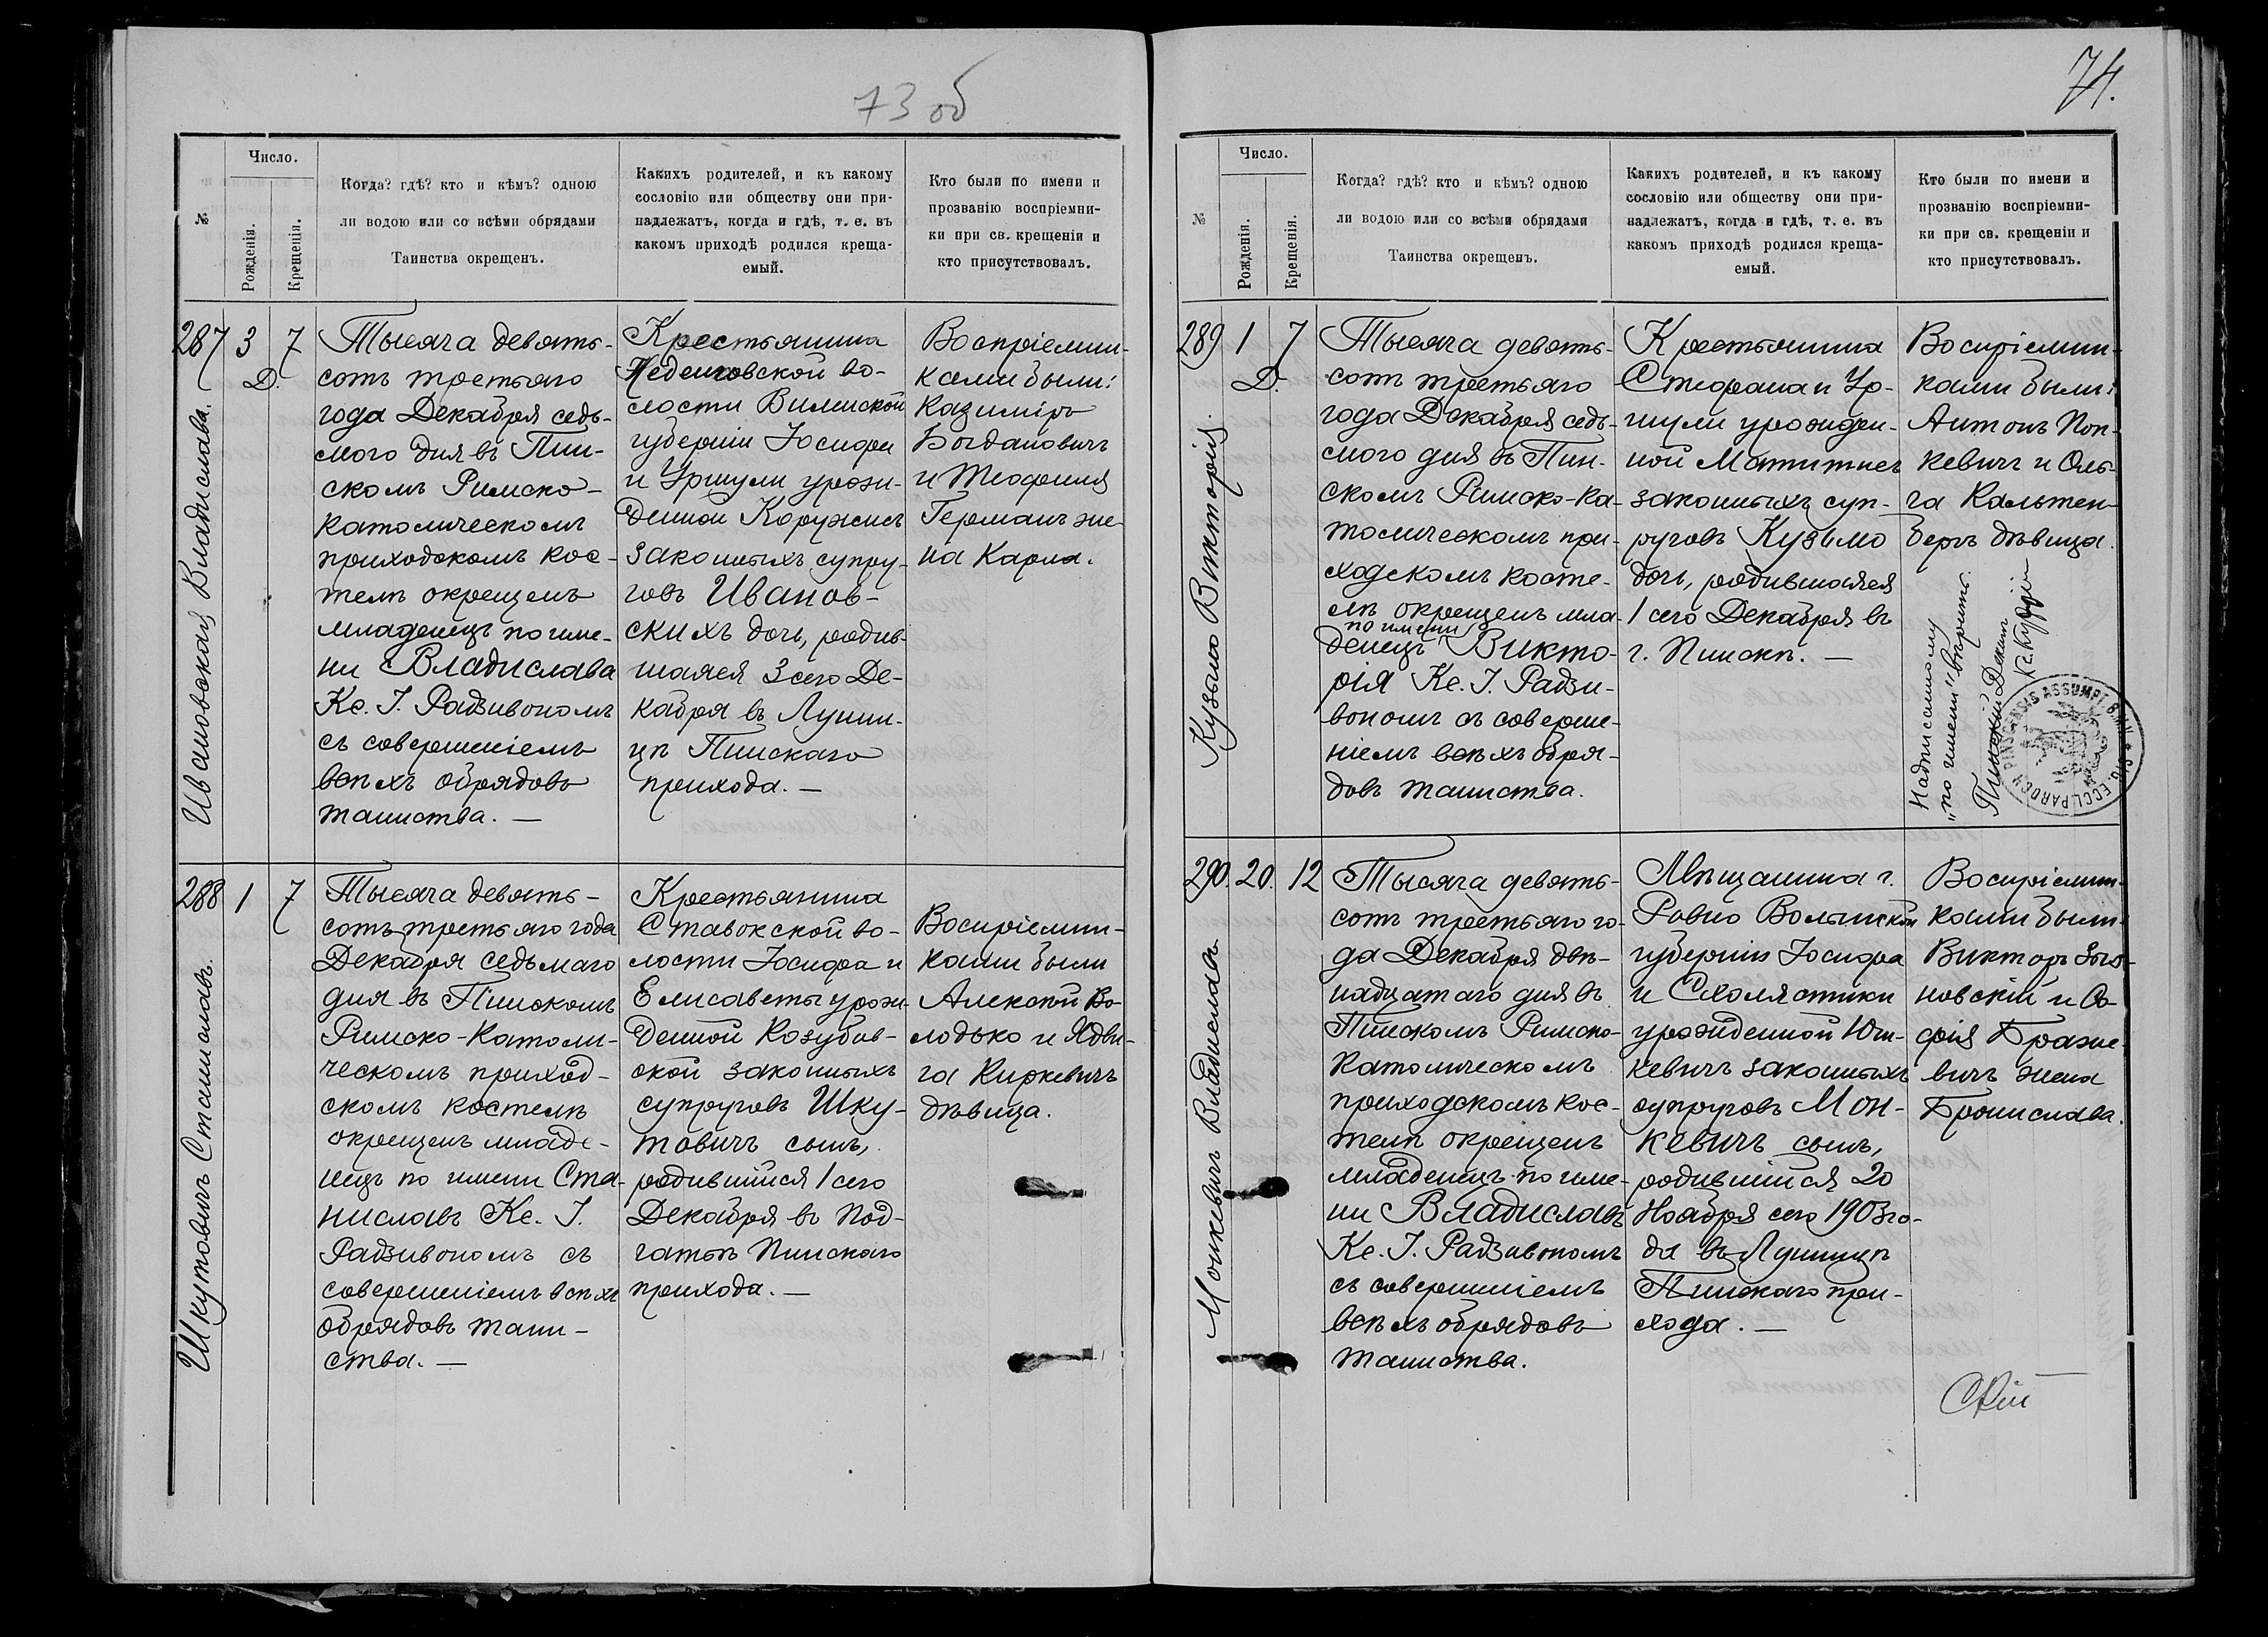 73 об
№
Число.
Рожденія.
Крещенія.
Когда? гдѣ? кто и кѣмъ? одною
ли водою или со всѣми обрядами
Таинства окрещенъ.
Какихъ родителей, и къ какому
сословію или обществу они при-
надлежатъ, когда и гдѣ, т. е. въ
какомъ приходѣ родился креща-
емый.
Кто были по имени и
прозванію воспріемни-
ки при св. крещеніи и
кто присутствовалъ.
287
3
7
Д.
Ивановская Владислава.
Тысяча девять-
сотъ третьяго
года Декабря седь-
мого дня въ Пин-
скомъ Римско-
католическомъ
приходскомъ кос-
телѣ окрещенъ
младенецъ по име-
ни Владислава
Кс. І. Радзивономъ
съ совершеніемъ
всѣхъ обрядовъ
таинства. —
Крестьянина
во-
лости Виленской
губерніи Іосифа
и Уршули урож-
денной Коружисъ
законныхъ супру-
говъ Иванов-
скихъ дочь, родив-
шаяся 3 сего Де-
кабря въ Лунин-
цѣ Пинскаго
прихода. —
Воспріемни-
ками были:
Казиміръ
Богдановичъ
и Теофиля
Германъ же-
на Карла.
288
1
7
Шкутовичъ Станиславъ.
Тысяча девять-
сотъ третьяго года
Декабря седьмаго
дня въ Пинскомъ
Римско-Католи-
ческомъ приход-
скомъ костелѣ
окрещенъ младе-
нецъ по имени Ста-
ниславъ Кс. І.
Радзивономъ съ
совершеніемъ всѣхъ
обрядовъ таин-
ства. —
Крестьянина
Ставокской во-
лости Іосифа и
Елисаветы урож-
денной Козубов-
ской законныхъ
супруговъ Шку-
товичъ сынъ,
родившійся 1 сего
Декабря въ Под-
гатѣ Пинскаго
прихода. —
Воспріемни-
ками были
Алексѣй Во-
лодько и Ядви-
га Киркевичъ
дѣвица.
74.
№
Число.
Рожденія.
Крещенія.
Когда? гдѣ? кто и кѣмъ? одною
ли водою или со всѣми обрядами
Таинства окрещенъ.
Какихъ родителей, и къ какому
сословію или обществу они при-
надлежатъ, когда и гдѣ, т. е. въ
какомъ приходѣ родился креща-
емый.
Кто были по имени и
прозванію воспріемни-
ки при св. крещеніи и
кто присутствовалъ.
289
1
7
Д.
Кузьмо Викторія.
Тысяча девять-
сотъ третьяго
года Декабря седь-
мого дня въ Пин-
скомъ Римско-Ка-
толическомъ при-
ходскомъ косте-
лѣ окрещенъ мла-
по имени
денецъ Викто-
рія Кс. І. Радзи-
вономъ съ соверше-
ніемъ всѣхъ обря-
довъ таинства.
Крестьянина
Стефана и Ур-
шули урожден-
ной
законныхъ суп-
руговъ Кузьмо
дочь, родившаяся
1 сего Декабря въ
г. Пинскѣ. —
Воспріемни-
ками были:
Антонъ Поп-
кевичъ и Оль-
га Кальтен-
беръ дѣвица.
Надписанному
„по имени" вѣрить.
Пинскій Деканъ
ECCL. PAROCH. PINSCENSIS ASSUMPT. B.M.V. * SIG.
290.
20.
12
Монкевичъ Владиславъ
Тысяча девять-
сотъ третьяго го-
да Декабря двѣ-
надцатаго дня въ
Пинскомъ Римско-
Католическомъ
приходскомъ кос-
телѣ окрещенъ
младенецъ по име-
ни Владиславъ
Кс. І. Радзивономъ
съ совершеніемъ
всѣхъ обрядовъ
таинства.
Мѣщанина г.
Ровно Волынской
губерніи Іосифа
и Схолястики
урожденной Юш-
кевичъ законныхъ
супруговъ Мон-
кевичъ сынъ,
родившійся 20
Ноября сего 1903 го-
да въ Лунинцѣ
Пинскаго при-
хода. —
Воспріемни-
ками были
Викторъ
новскій и Со-
фія Браже-
вичъ жена
Бронислава.